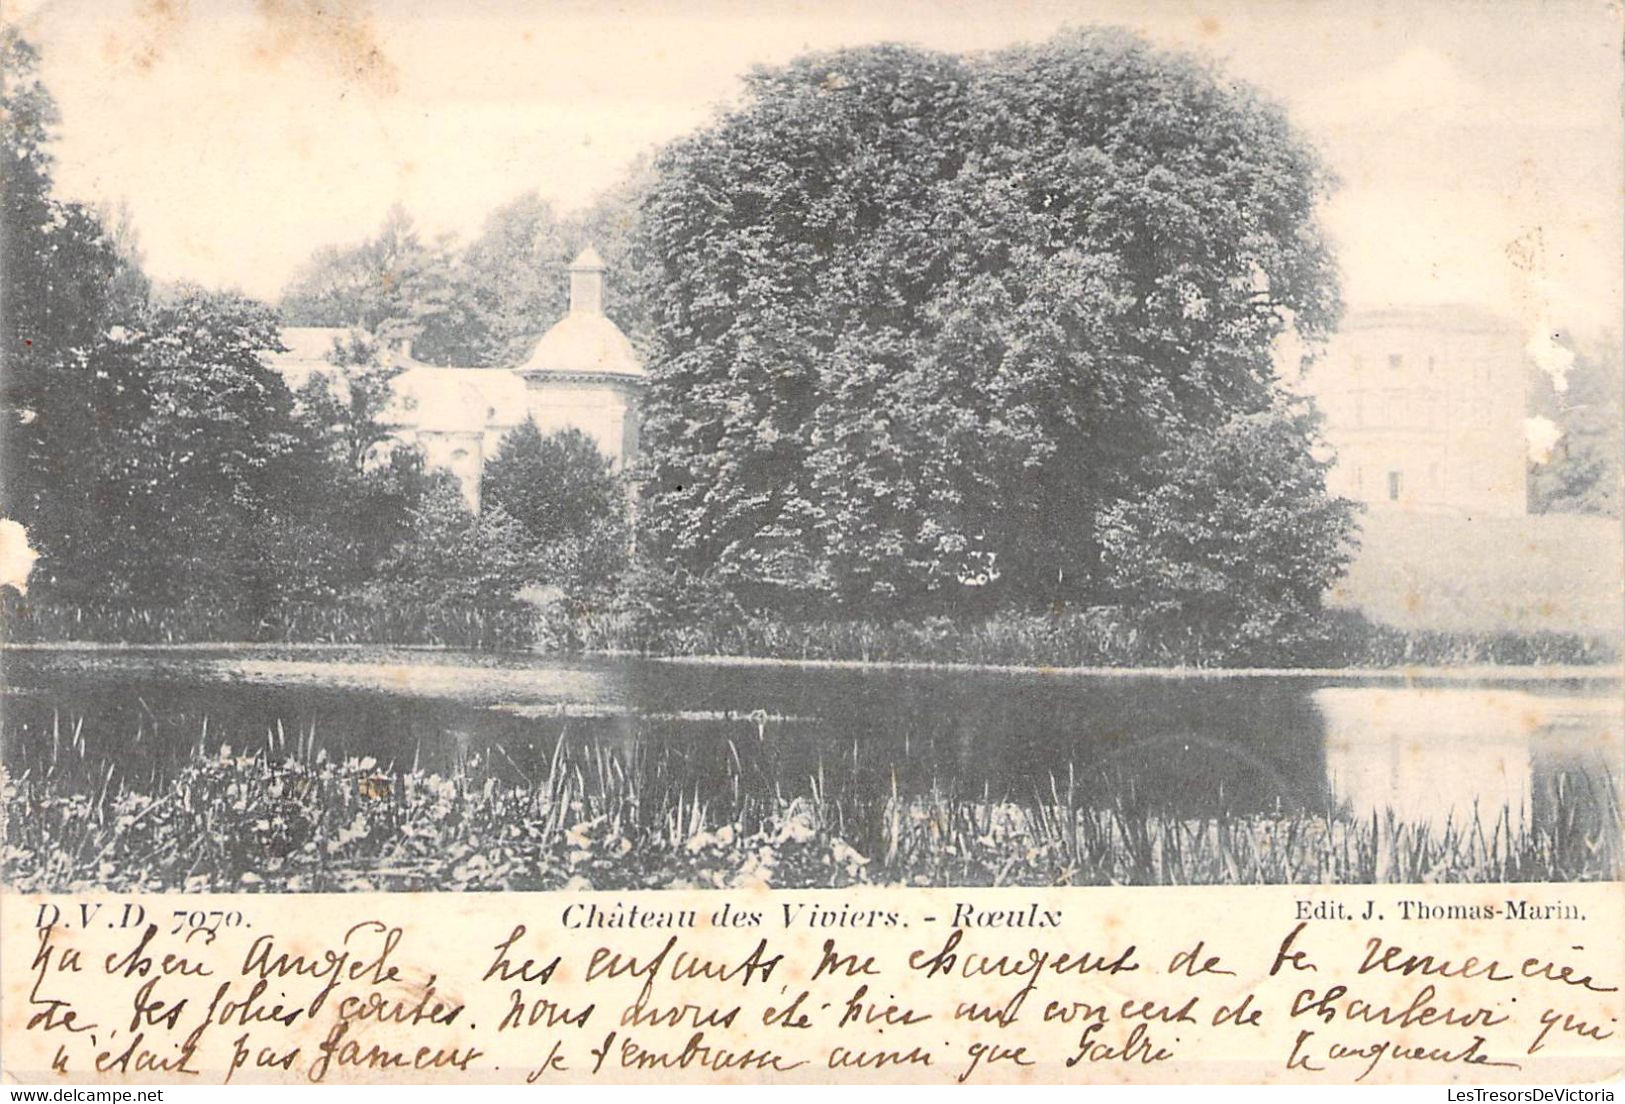 D.V.D. 7970.
Château des Viviers. - Rœulx
Edit. J. Thomas-Marin.
Ma chère Angèle, Les enfants me chargent de te remercier
de tes jolies cartes. Nous avons été hier au concert de Charleroi qui
n'était pas fameux. Je t'embrasse ainsi que Gabri
LesTresorsDeVictoria